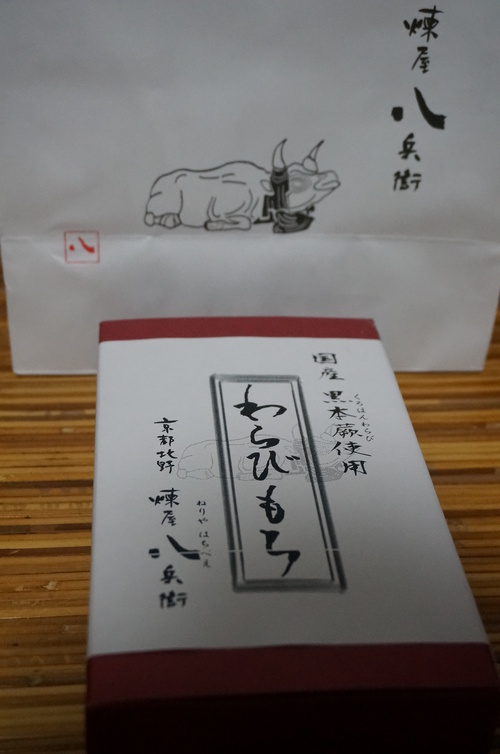 煉屋八兵衛
八
国産 黒本蕨使用
くろほんわらび
わらびもち
ねりや はちべえ
京都北野 煉屋八兵衛